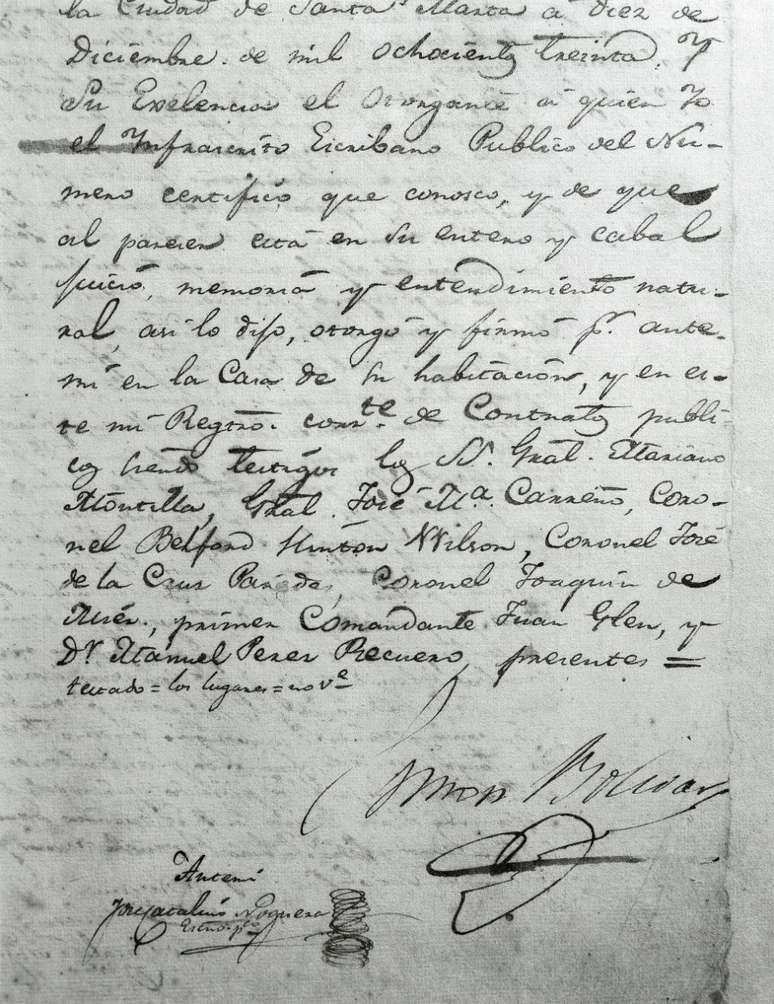 la Ciudad de Santa Marta a diez de
Diciembre de mil ochocientos treinta. Y
Su Exelencia el Otorgante á quien Yo
el Infrascrito Escribano Publico del Nu-
mero certificó que conosco, y de que
al parecer está en su entero y cabal
juició, memoriá y entendimiento natu-
ral, asi lo dijo, otorgó y firmó pr. ante-
mi en la Casa de su habitación, y en es-
te mi Registro. corrte. de Contratos publi-
cos siendo testigos los SS. Gral. Mariano
Montilla, Gral. José Ma. Carreño, Coro-
nel Belford Hinton Wilson, Coronel José
de la Cruz Paredes, Coronel Joaquin de
Mier, primer Comandante Juan Glen, y
Dr. Manuel Perez Recuero, presentes =
testado = los lugares = no ve
Simon Bolivar
Antemi
José Catalino Noguera
Escno. pco.